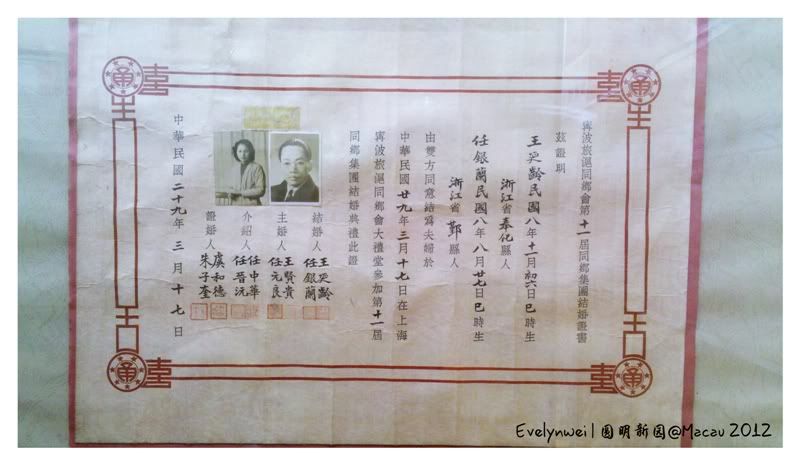 寗波旅滬同鄉會第十一屆同鄉集團結婚證書
茲證明
王奀齡民國八年十一月初六日巳時生
浙江省奉化縣人
任銀蘭民國八年八月廿七日巳時生
浙江省鄞縣人
由雙方同意結為夫婦於
中華民國廿九年三月十七日在上海
寗波旅滬同鄉會大禮堂參加第十一屆
同鄉集團結婚典禮此證
結婚人 王奀齡 任銀蘭
主婚人 王賢貴 任元良
介紹人 任中華 任晉沅
證婚人 虞和德 朱子奎
中華民國二十九年三月十七日
Evelynwei | 圆明新园@Macau 2012